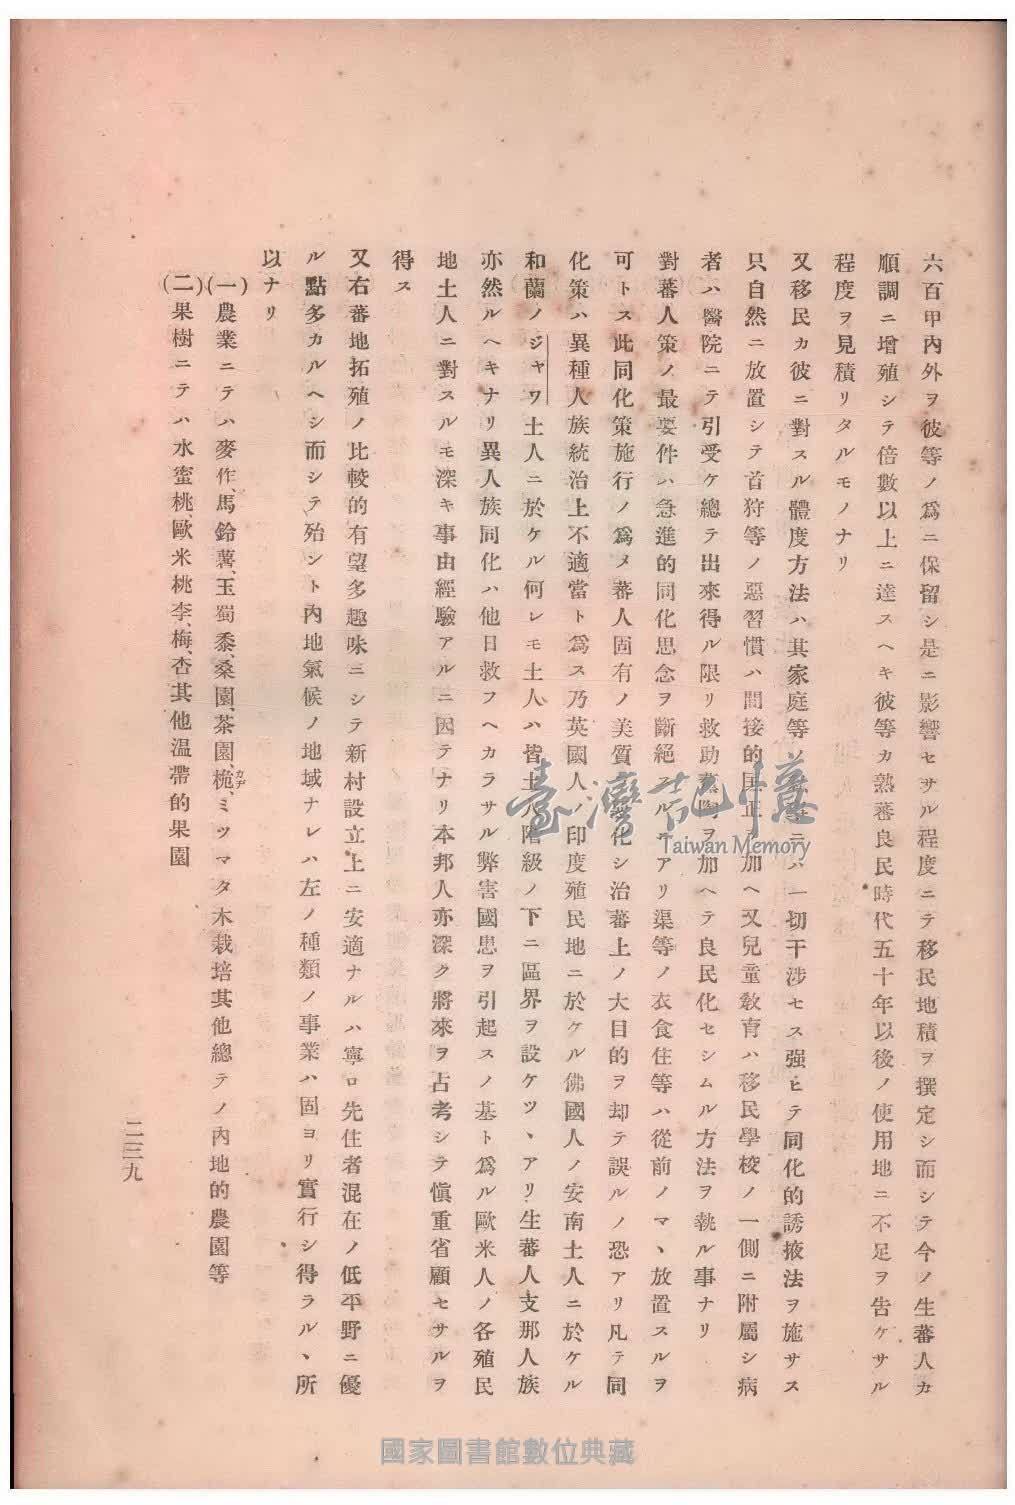 六百甲內外ヲ彼等ノ爲ニ保留シ是ニ影響セサル程度ニテ移民地積ヲ撰定シ而シテ今ノ生蕃人カ
順調ニ增殖シテ倍數以上ニ達スヘキ彼等カ熟蕃良民時代五十年以後ノ使用地ニ不足ヲ告ケサル
程度ヲ見積リタルモノナリ
又移民カ彼ニ對スル體度方法ハ其家庭等ノ ニハ一切干涉セス强ヒテ同化的誘掖法ヲ施サス
只自然ニ放置シテ首狩等ノ惡習慣ハ間接的匡正ヲ加ヘ又兒童敎育ハ移民學校ノ一側ニ附屬シ病
者ハ醫院ニテ引受ケ總テ出來得ル限リ救助薰陶ヲ加ヘテ良民化セシムル方法ヲ執ル事ナリ
對蕃人策ノ最要件ハ急進的同化思念ヲ斷絕スルニアリ渠等ノ衣食住等ハ從前ノマヽ放置スルヲ
可トス此同化策施行ノ爲メ蕃人固有ノ美質 化シ治蕃上ノ大目的ヲ却テ誤ルノ恐アリ凡テ同
化策ハ異種人族統治上不適當ト爲ス乃英國人ノ印度殖民地ニ於ケル佛國人ノ安南土人ニ於ケル
和蘭ノジャワ土人ニ於ケル何レモ土人ハ皆土人階級ノ下ニ區界ヲ設ケツヽアリ生蕃人支那人族
亦然ルヘキナリ異人族同化ハ他日救フヘカラサル弊害國患ヲ引起スノ基ト爲ル歐米人ノ各殖民
地土人ニ對スルモ深キ事由經驗アルニ因テナリ本邦人亦深ク將來ヲ占考シテ愼重省顧セサルヲ
得ス
又右蕃地拓殖ノ比較的有望多趣味ニシテ新村設立上ニ安適ナルハ寧ロ先住者混在ノ低平野ニ優
ル點多カルヘシ而シテ殆ント內地氣候ノ地域ナレハ左ノ種類ノ事業ハ固ヨリ實行シ得ラルヽ所
以ナリ
(一)農業ニテハ麥作、馬鈴薯、玉蜀黍、桑園、茶園、桅、ミツマタ木栽培其他總テノ內地的農園等
カヂ
(二)果樹ニテハ水蜜桃、歐米桃、李、梅、杏其他溫帶的果園
二三九
臺灣記憶
Taiwan Memory
國家圖書館數位典藏